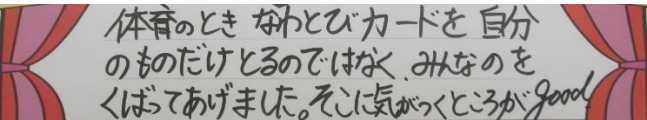 体育のとき なわとびカードを 自分
のものだけとるのではなく、みんなのを
くばってあげました。そこに気がつくところがgood